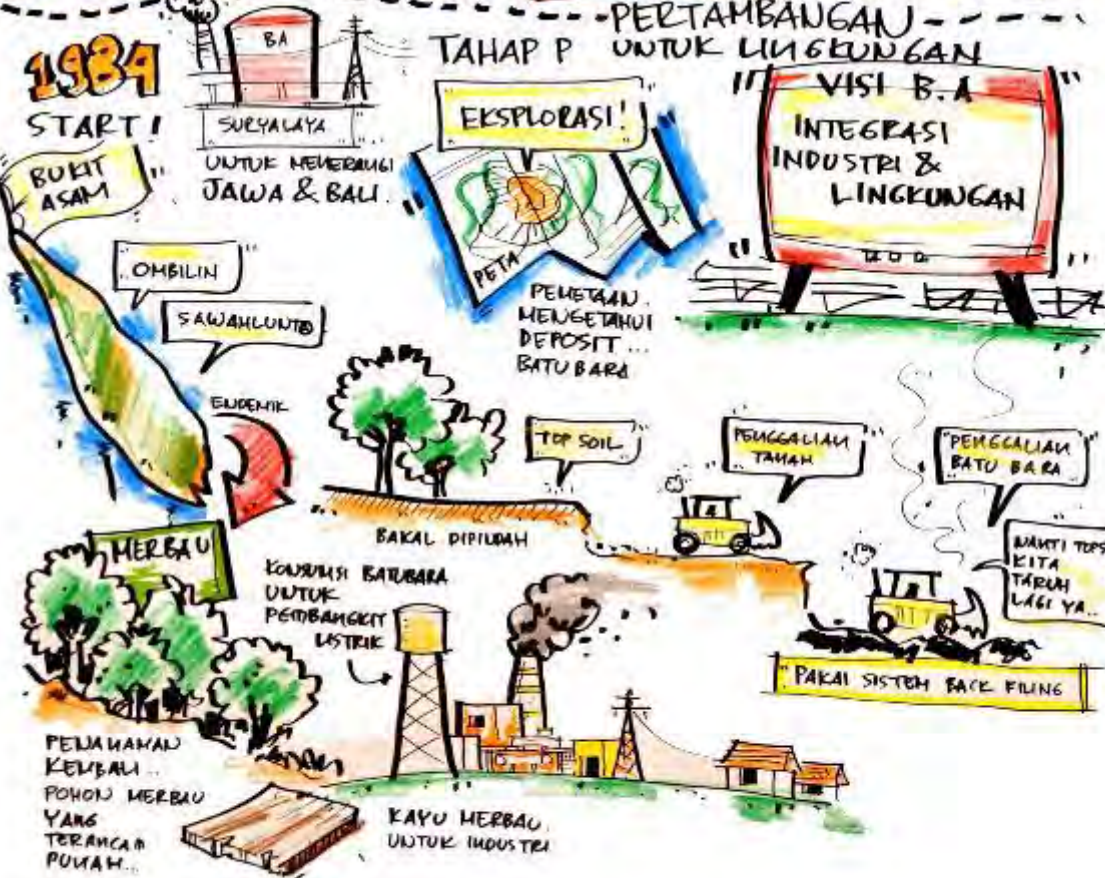 PERTAMBANGAN
UNTUK LINGKUNGAN
TAHAP P
1984
START!
BUKIT
ASAM
BA
SURYALAYA
UNTUK MENERANGI
JAWA & BALI.
EKSPLORASI!
PETA
PEMETAAN.
MENGETAHUI
DEPOSIT...
BATUBARA
VISI B.A
INTEGRASI
INDUSTRI &
LINGKUNGAN
OMBILIN
SAWAHLUNTO
ENDEMIK
MERBAU
TOP SOIL
BAKAL DIPINDAH
PENGGALIAN
TANAH
PENGGALIAN
BATU BARA
NANTI TOPS
KITA
TARUH
LAGI YA..
PAKAI SISTEM BACK FILING
KONSUMSI BATUBARA
UNTUK
PEMBANGKIT
LISTRIK
PENANAMAN
KEMBALI..
POHON MERBAU
YANG
TERANCAM
PUNAH...
KAYU MERBAU.
UNTUK INDUSTRI